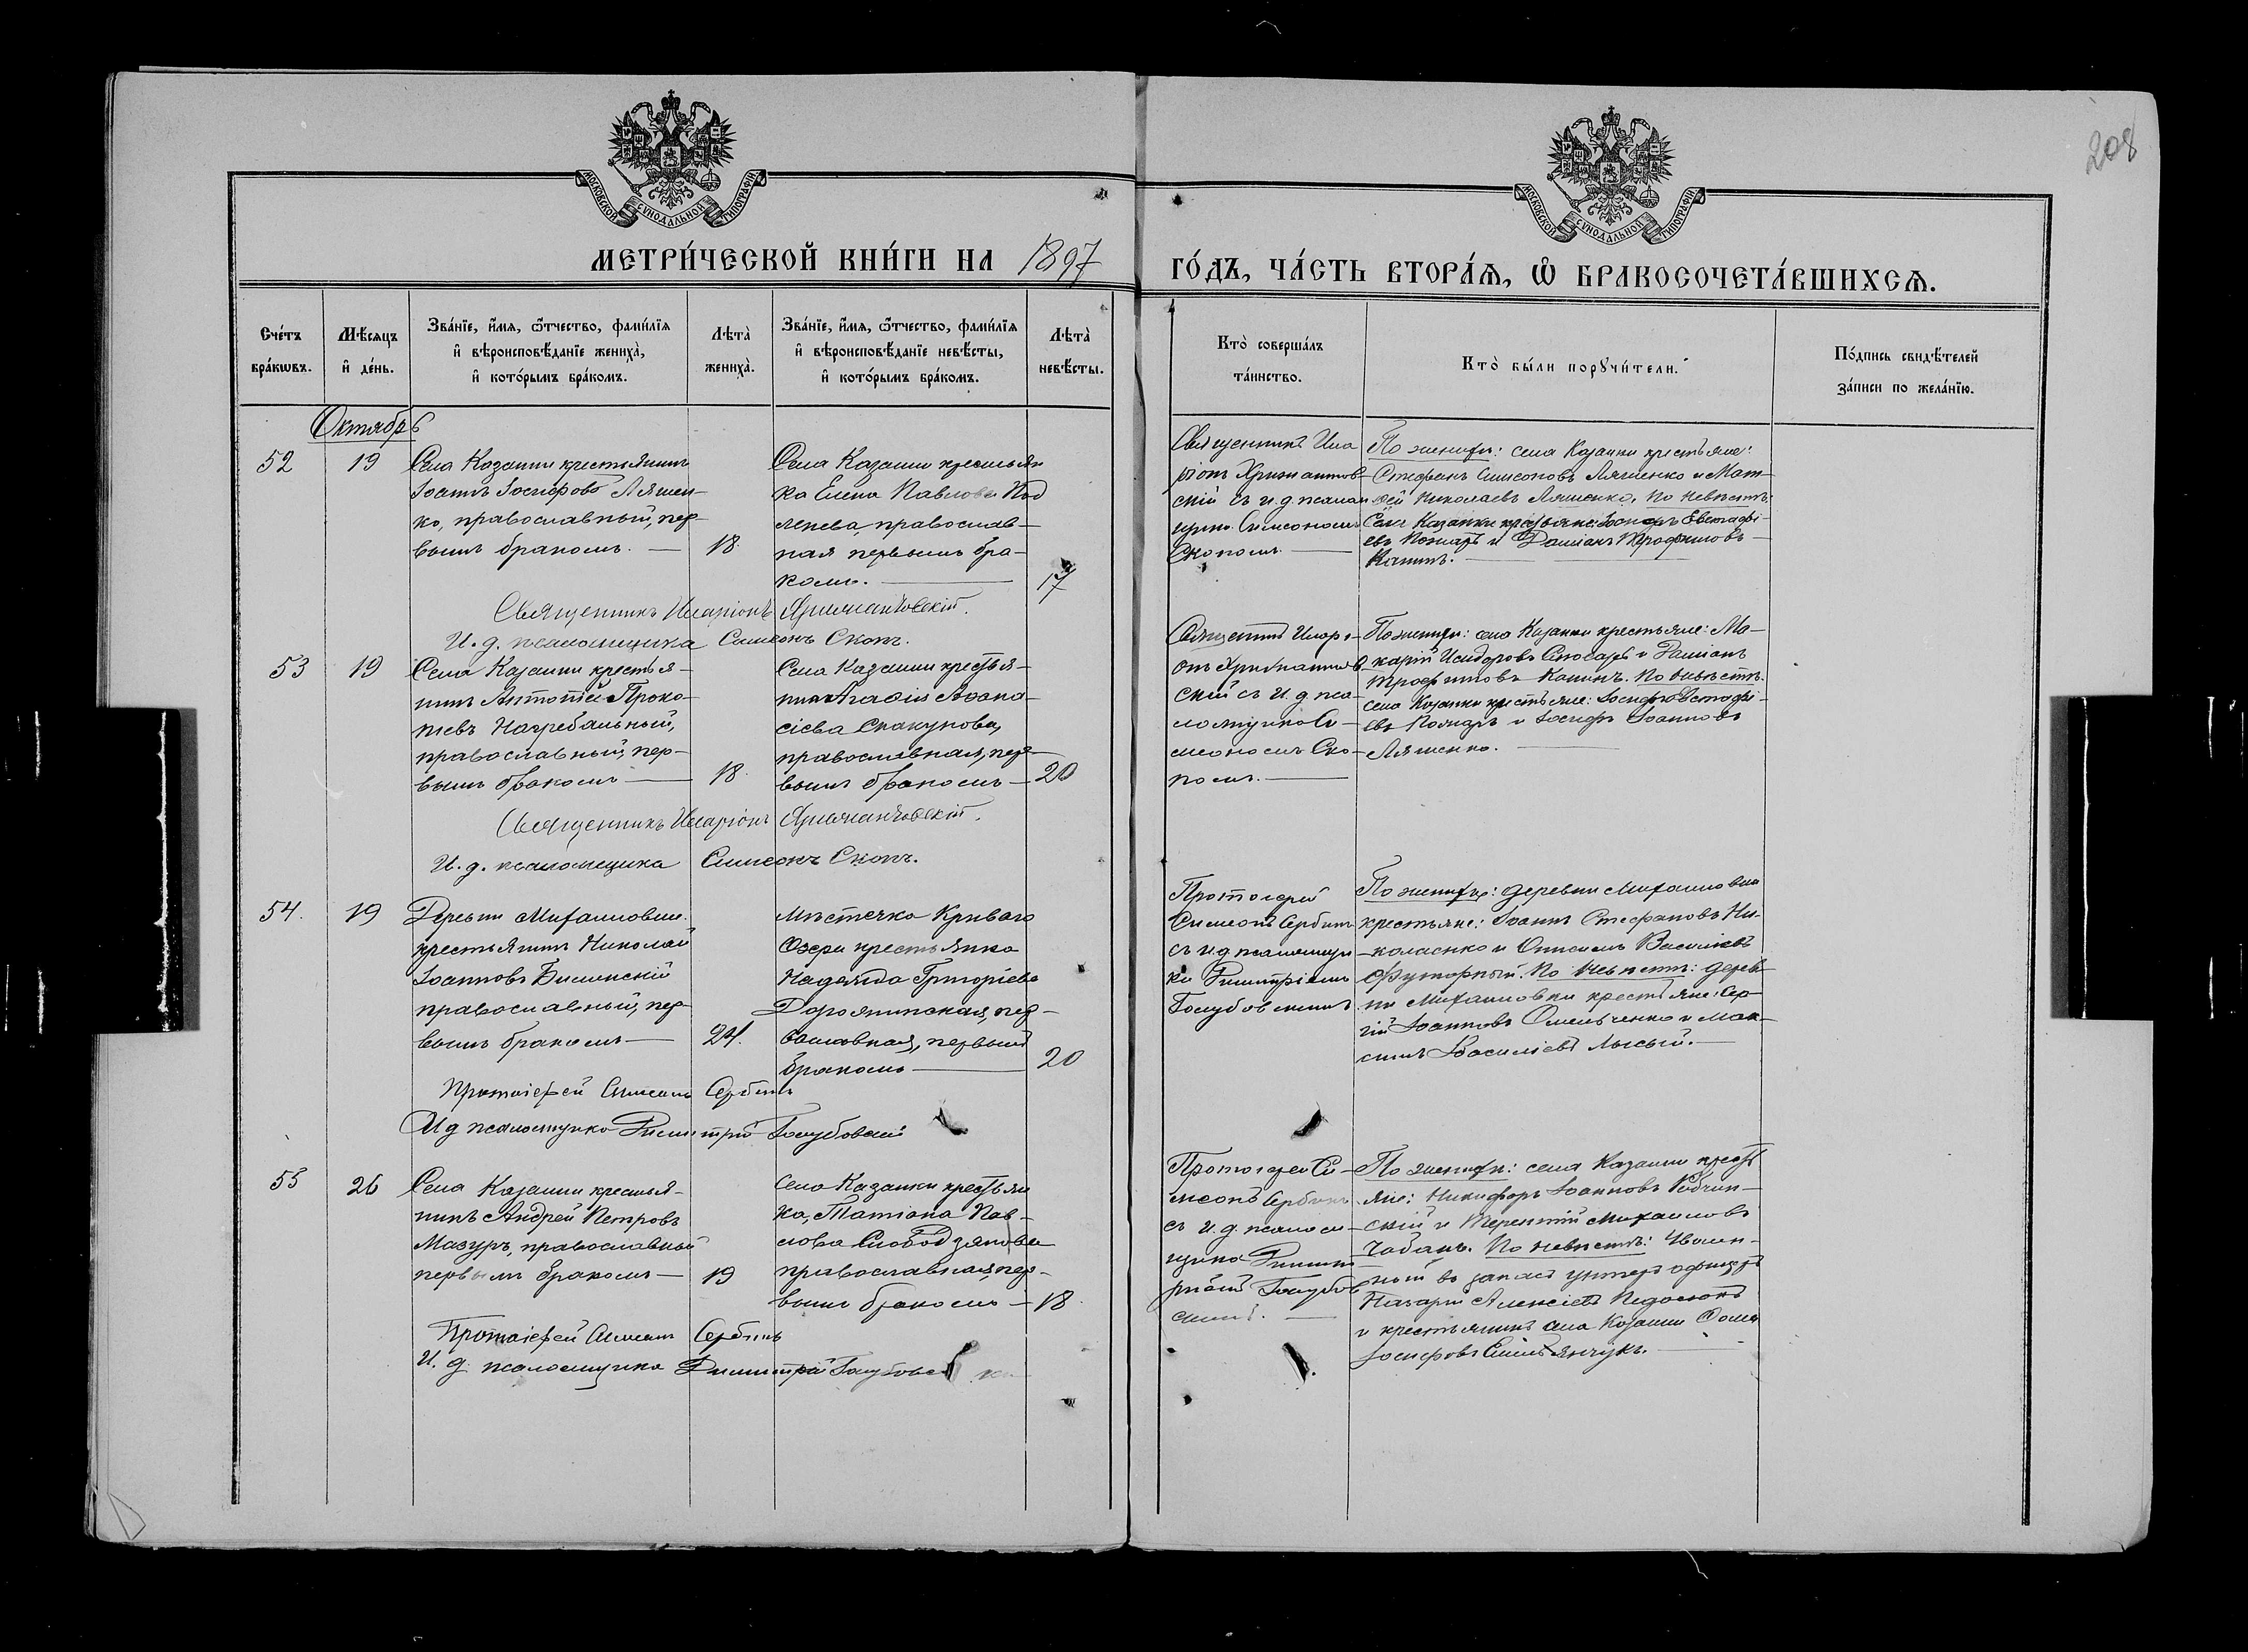 208
МОСКОВСКОЙ СѴНОДАЛЬНОЙ ТИПОГРАФІИ
МОСКОВСКОЙ СѴНОДАЛЬНОЙ ТИПОГРАФІИ
МЕТРИ́ЧЕСКОЙ КНИ́ГИ НА 1897
ГО́ДЪ, ЧА́СТЬ ВТОРА́Ѧ, Ѡ҆ БРАКОСОЧЕТА́ВШИХСѦ.
Сче́тъ
бра́кѡвъ.
Мѣ́сяцъ
и҆ де́нь.
Зва́нїе, и҆́мя, ѻ҆́тчество, фами́лїя
и҆ вѣроисповѣ́данїе жениха̀,
и҆ кото́рымъ бра́комъ.
Лѣта̀
жениха̀.
Зва́нїе, и҆́мя, ѻ҆́тчество, фами́лїя
и҆ вѣроисповѣ́данїе невѣ́сты,
и҆ кото́рымъ бра́комъ.
Лѣта̀
невѣ́сты.
Кто̀ соверша́лъ
та́инство.
Кто̀ бы́ли порꙋчи́тели.
По́дпись свидѣ́телей
за́писи по жела́нїю.
Октябрь
52
19
Села Казанки крестьянинъ
Іоаннъ Іосифовъ Ляшен-
ко, православный, пер-
вымъ бракомъ. —
18.
Села Казанки крестьян
ка Елена Павлова Под
лепева, православ-
ная первымъ бра-
комъ. —
17
Священникъ Ила
ріонъ
скій съ и. д. псалом
щика Симеономъ
Скопомъ. —
По женихѣ: села Казанки крестьяне:
Стефанъ Симеоновъ Ляшенко и Мат-
ѳей Николаевъ Ляшенко, по невѣстѣ
Села Казанки крестьяне: Іосифъ Евстафі-
евъ Пожаръ и Даміанъ Трофимовъ
Капинъ. —
Священникъ Иларіонъ
И. д. псаломщика Симеонъ Скопъ.
53
19
Села Казанки крестья-
нинъ Антоній Проко-
піевъ Нагребальный,
православный, пер-
вымъ бракомъ —
18.
Села Казанки крестья-
нка Агаѳія Аѳана-
сіева Скакунова,
православная, пер-
вымъ бракомъ —
20
Священникъ Иларі-
онъ
скій съ И. д. пса-
ломщика Си-
меономъ Ско-
помъ. —
По женихѣ: села Казанки крестьяне: Ма-
карій Исидоровъ Слюсарь и Даміанъ
Трофимовъ Капинъ. По невѣстѣ:
села Казанки крестьяне: Іосифъ Евстафі-
евъ Пожаръ и Іосифъ Іоанновъ
Ляшенко. —
Священникъ Иларіонъ
И. д. псаломщика Симеонъ Скопъ.
54.
19
Деревни Михайловки
крестьянинъ Николай
Іоанновъ Билинскій
православный, пер
вымъ бракомъ —
24.
Мѣстечка Криваго
Озера крестьянка
Надежда Григоріева
пра
вославная, первымъ
бракомъ —
20
Протоіерей
Симеонъ Сербинъ
съ и. д. псаломщи
ка Димитріемъ
Голубовскимъ
По женихѣ: деревни Михайловки
крестьяне: Іоаннъ Стефановъ Ни-
колаенко и Онисимъ Василіевъ
Футорный. По невѣстѣ: дерев
ни Михайловки крестьяне: Сер
гій Іоанновъ Омельченко и Мак-
симъ Василіевъ Лысый. —
Протоіерей Симеонъ Сербинъ
И д псаломщика Димитрій Голубовскій
55
26
Села Казанки крестья-
нинъ Андрей Петровъ
Мазуръ, православный
первымъ бракомъ —
19
Села Казанки крестьян
ка, Татіана Пав-
лова Слободзянова
православная, пер-
вымъ бракомъ —
18.
Протоіерей Си-
меонъ Сербинъ
съ и. д. псалом-
щика Димит
ріемъ Голубов
скимъ. —
По женихѣ: села Казанки крест
яне: Никифоръ Іоанновъ
скій и Терентій Михайловъ
Чабанъ. По невѣстѣ: Уволен-
ный въ запасъ унтеръ офицеръ
Назарій Алексіевъ
и крестьянинъ села Казанки Ѳома
Іосифовъ Емельянчукъ. —
Протоіерей Симеонъ Сербинъ
И. д. псаломщика Димитрій Голубовскій